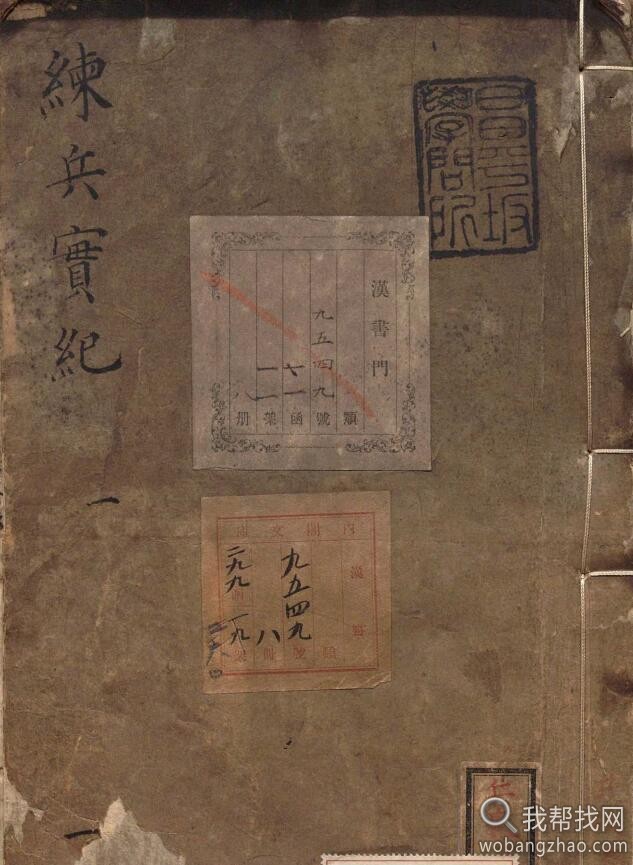 練兵實紀
一
一
昌平坂
學問所
漢書門
類
九五四九號
函
架
八冊
內閣文庫
漢書
九五四九
八
二九九
一九
類號冊
架
仁
我帮找网
wobangzhao.com